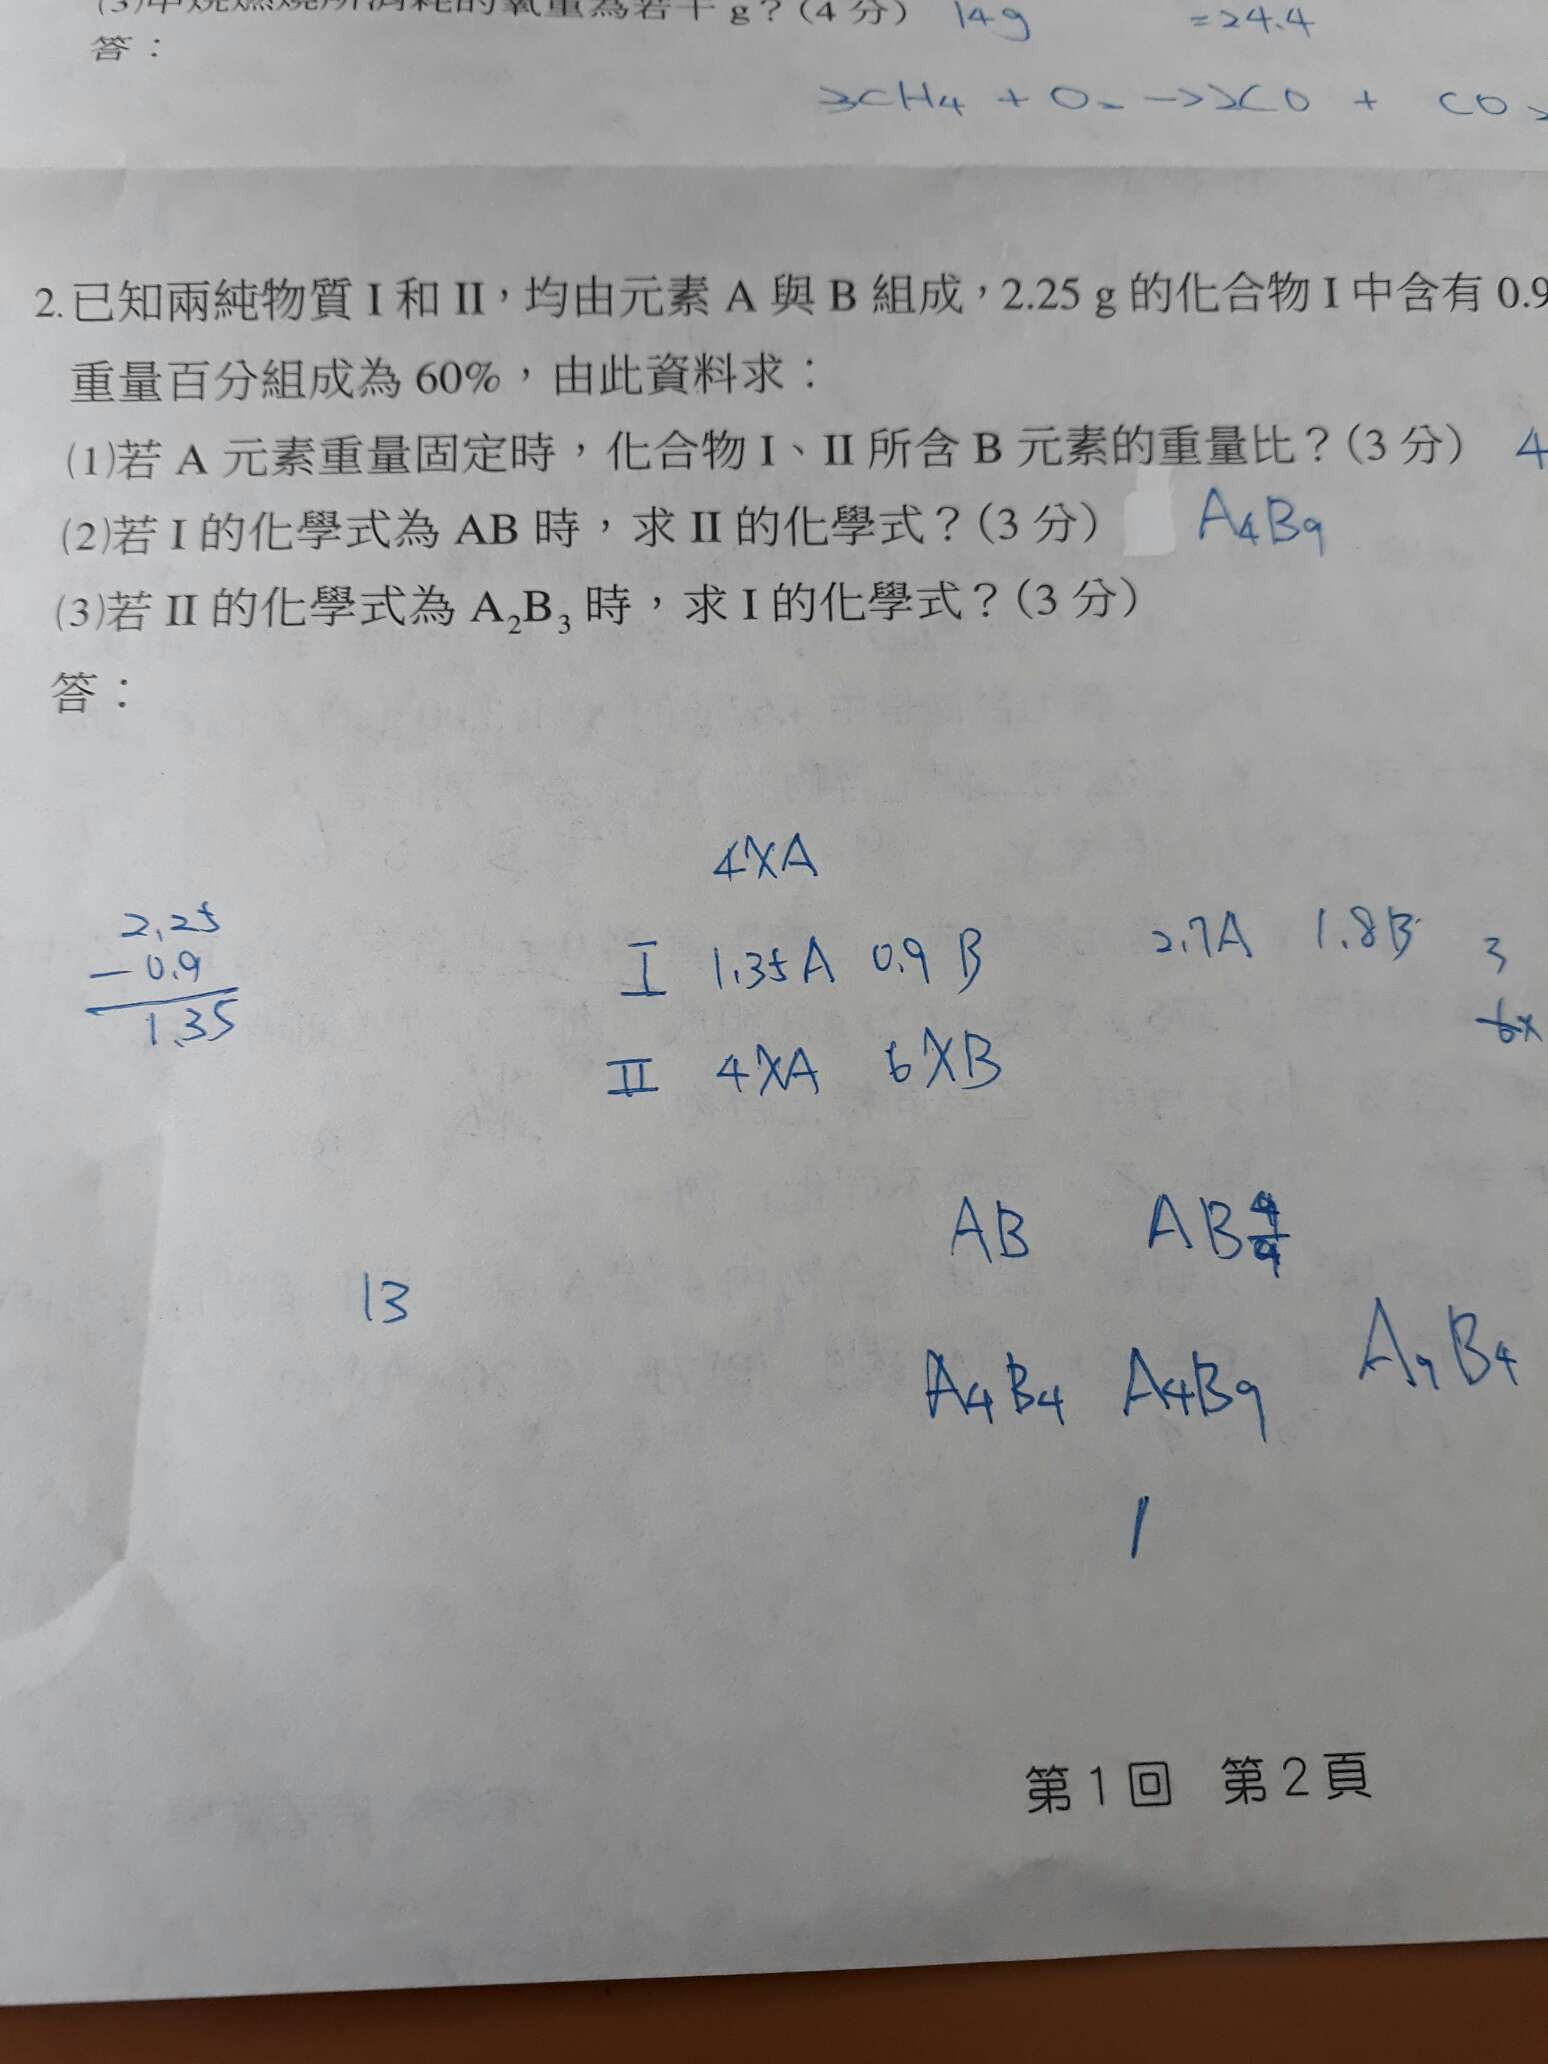 (3)甲烷燃燒所消耗的氧重為若干 g？(4 分) 14g =24.4
答：
3CH4 + O2 → 2CO + CO2
2.已知兩純物質 I 和 II，均由元素 A 與 B 組成，2.25 g 的化合物 I 中含有 0.9
重量百分組成為 60%，由此資料求：
(1)若 A 元素重量固定時，化合物 I、II 所含 B 元素的重量比？(3 分) 4
(2)若 I 的化學式為 AB 時，求 II 的化學式？(3 分) A4B9
(3)若 II 的化學式為 A2B3 時，求 I 的化學式？(3 分)
答：
4XA
2.25
- 0.9
1.35
I 1.35A 0.9 B 2.7A 1.8B 3
II 4XA 6XB 6x
AB AB4/9
13
A4B4 A4B9 A9B4
第 1 回 第 2 頁